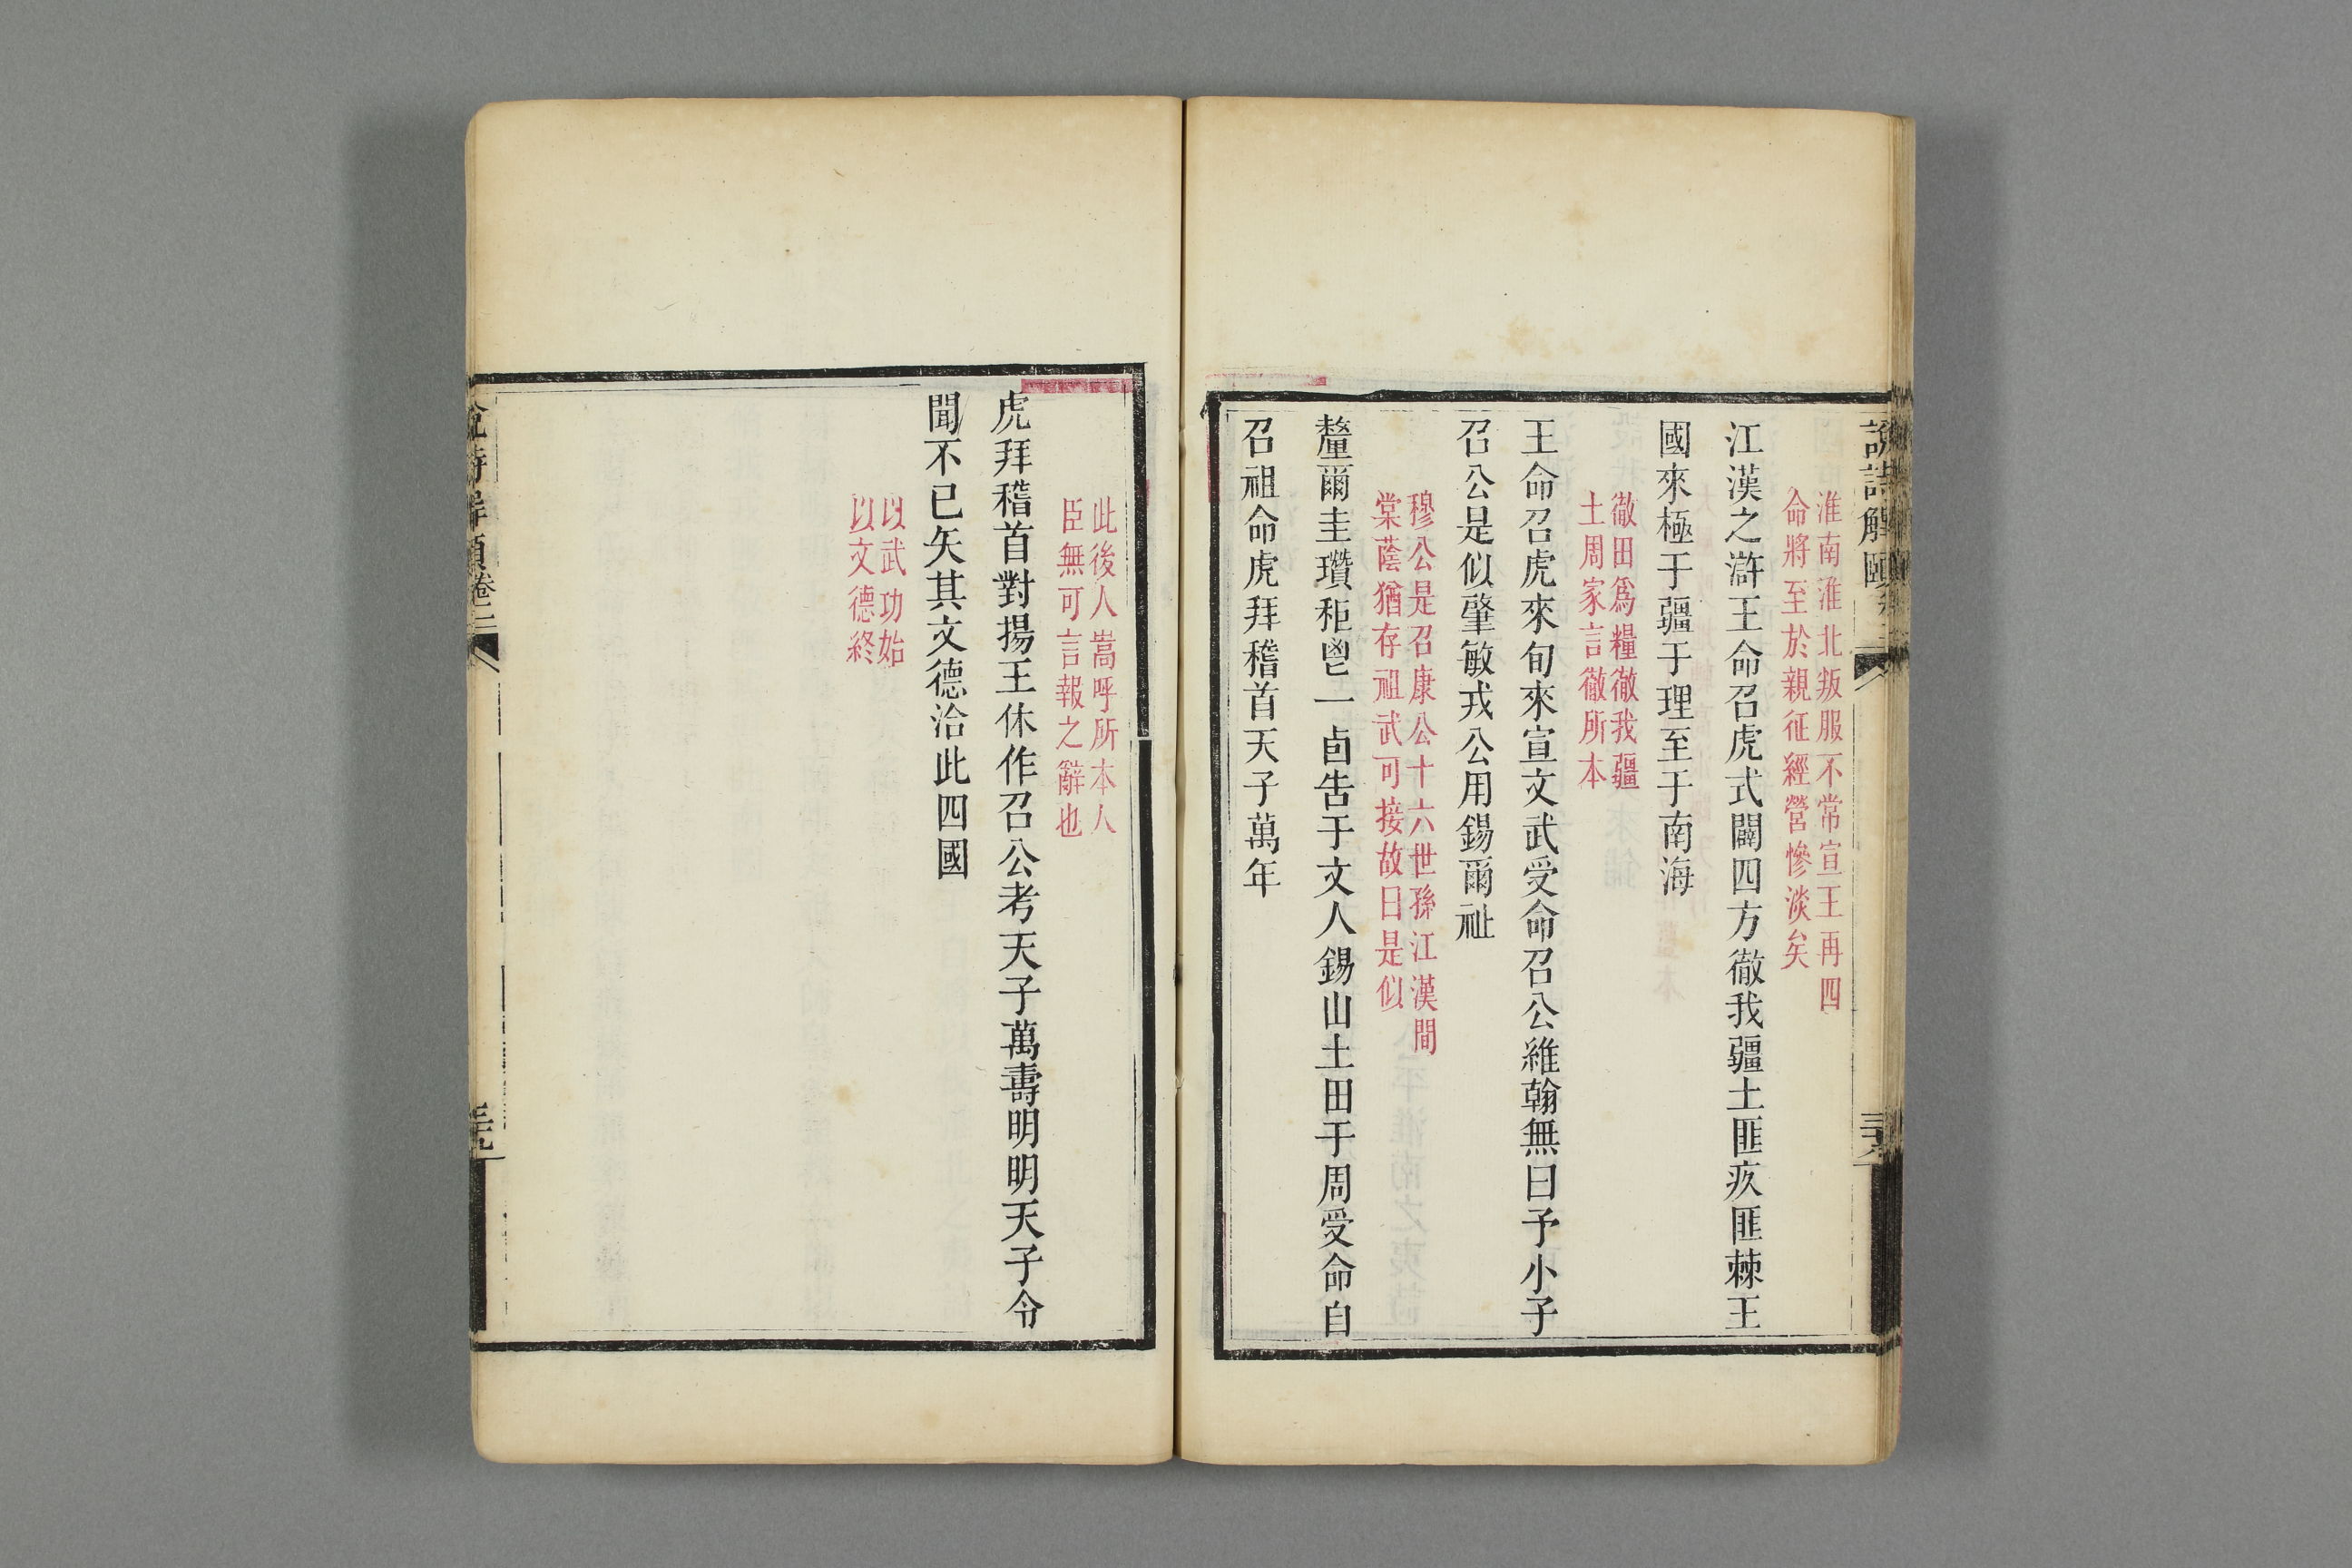 說詩解頤
淮南淮北叛服不常宣王再四
命將至於親征經營慘淡矣
江漢之滸王命召虎式闢四方徹我疆土匪疚匪棘王
國來極于疆于理至于南海
徹田爲糧徹我疆
土周家言徹所本
王命召虎來旬來宣文武受命召公維翰無曰予小子
召公是似肇敏戎公用錫爾祉
穆公是召康公十六世孫江漢間
棠蔭猶存祖武可接故曰是似
釐爾圭瓚秬鬯一卣告于文人錫山土田于周受命自
召祖命虎拜稽首天子萬年
此後人嵩呼所本人
臣無可言報之辭也
虎拜稽首對揚王休作召公考天子萬壽明明天子令
聞不已矢其文德洽此四國
以武功始
以文德終
卷二